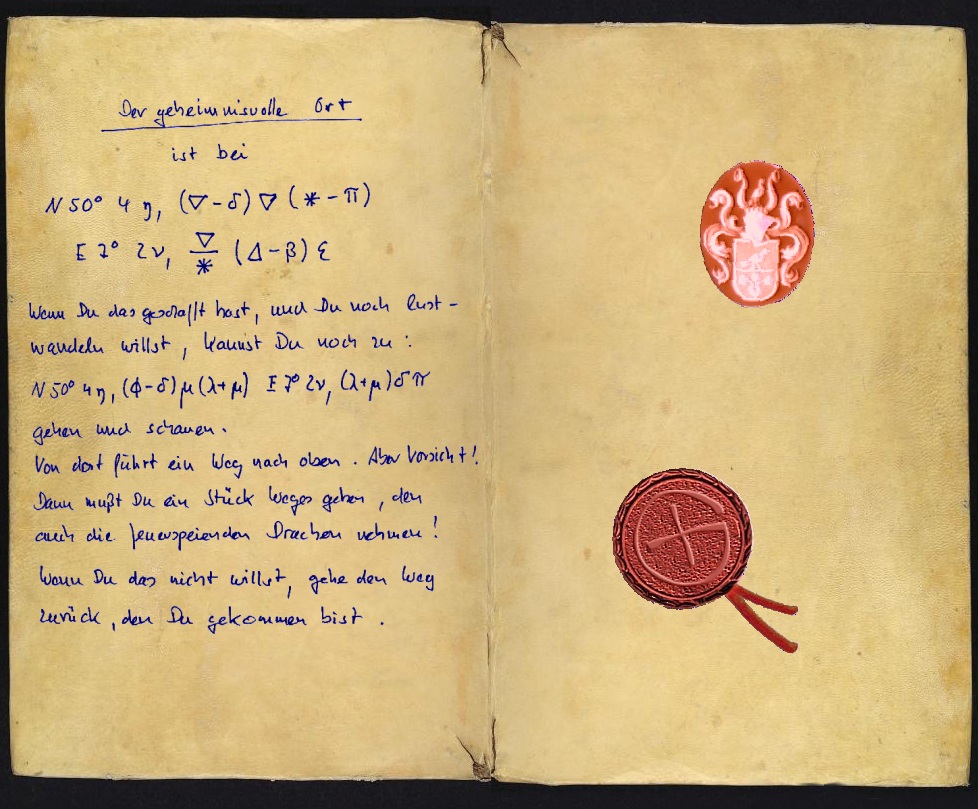 Der geheimnisvolle Ort
ist bei
N 50° 4 η, (∇-δ) ∇ (*-π)
E 7° 2ν, ∇/* (Δ-β) ε
Wenn Du das geschafft hast, und Du noch lust-
wandeln willst, kannst Du noch zu:
N 50° 4η, (ϕ-δ) μ (λ+μ) E 7° 2ν, (λ+μ) δ π
gehen und schauen.
Von dort führt ein Weg nach oben. Aber Vorsicht!
Dann mußt Du ein Stück Weges gehen, den
auch die feuerspeienden Drachen nehmen!
Wenn Du das nicht willst, gehe den Weg
zurück, den Du gekommen bist.